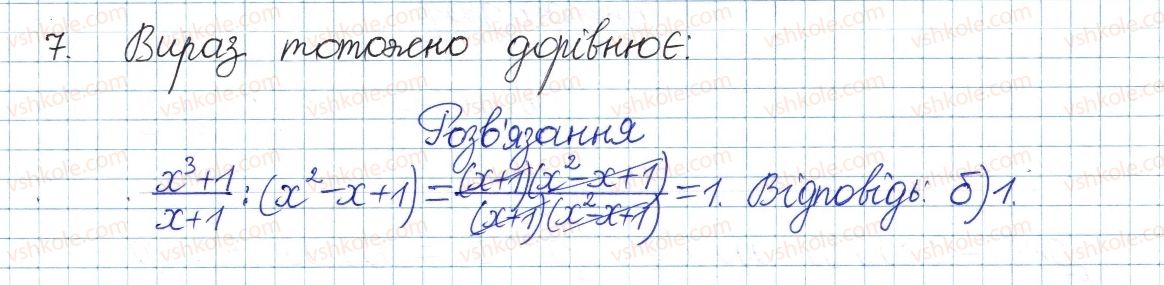 7. Вираз тотожно дорівнює:
Розв'язання
x³+1/x+1 : (x²-x+1) = (x+1)(x²-x+1)/(x+1)(x²-x+1) = 1. Відповідь: б) 1.